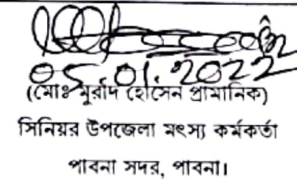 05.01.2022
(মোঃ মুরাদ হোসেন প্রামানিক)
সিনিয়র উপজেলা মৎস্য কর্মকর্তা
পাবনা সদর, পাবনা।